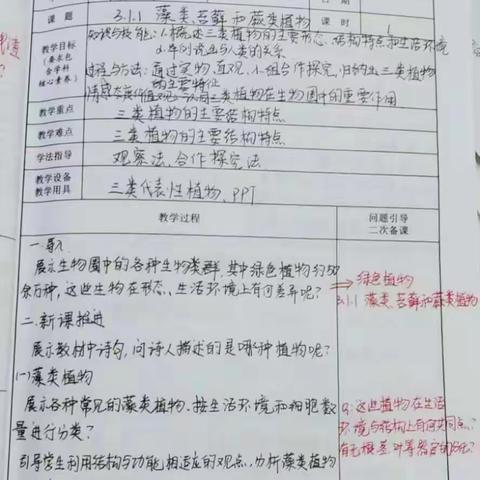 课 题 3.1.1 藻类、苔藓和蕨类植物 课 时 1
教学目标 知识与技能:1.概述三类植物的主要形态、结构特点和生活环境
(要求包含学科核心素养) 2.举例说出与人类的关系
过程与方法:通过实物、直观、小组合作探究,归纳出三类植物
的主要特征
情感态度价值观:认同三类植物在生物圈中的重要作用
教学重点 三类植物的主要结构特点
教学难点 三类植物的主要结构特点
学法指导 观察法、合作探究法
教学设备
教学用具 三类代表性植物、PPT
教学过程 问题引导
二次备课
一.导入
展示生物圈中的各种生物类群,其中绿色植物约50
余万种,这些生物在形态、生活环境上有何差异呢?
→绿色植物
3.1.1 藻类、苔藓和蕨类植物
二.新课推进
展示教材中诗句,问诗人描述的是哪种植物呢?
(一)藻类植物
展示各种常见的藻类植物.按生活环境和细胞数
量进行分类?
引导学生利用结构与功能相适应的观点,分析藻类植物
Q:这些植物在生活
环境与结构上有何共同点?
有无根茎叶等器官的分化?